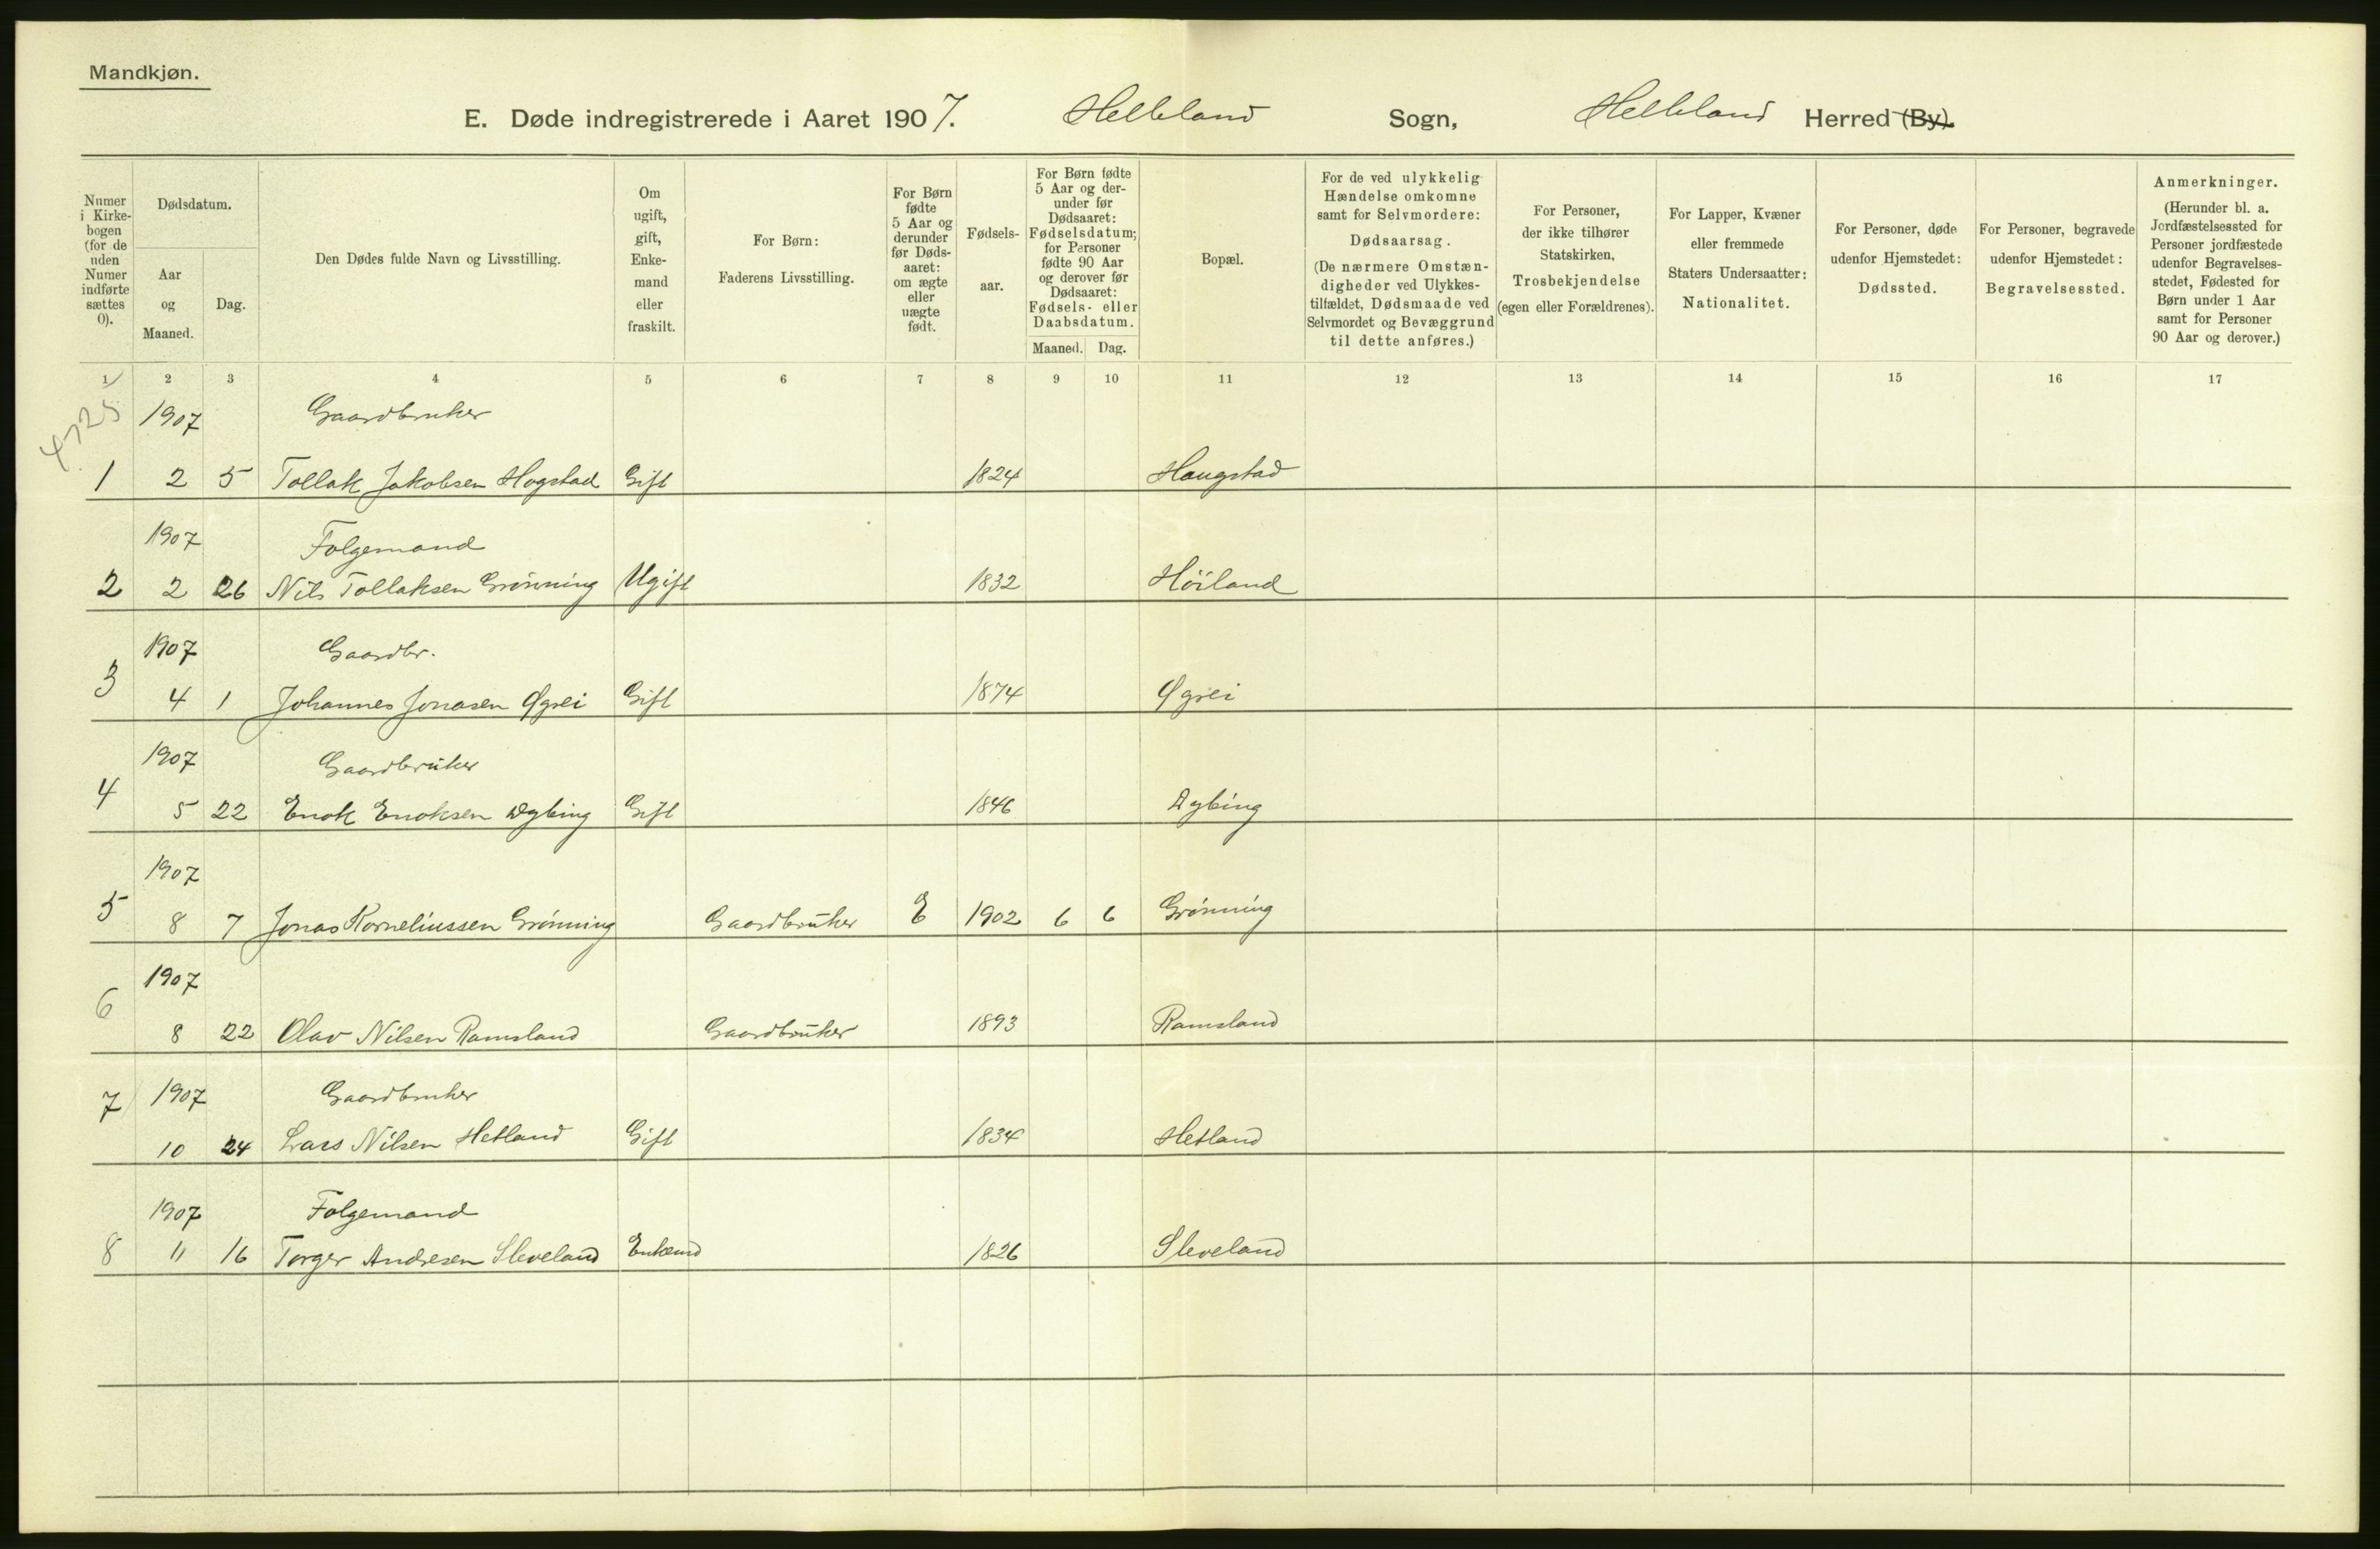 Mandkjøn.
E. Døde indregistrerede i Aaret 1907. Helleland Sogn, Helleland Herred (By).
Numer i Kirkebogen (for de uden Numer indførte sættes 0).
Dødsdatum.
Aar og Maaned.
Dag.
Den Dødes fulde Navn og Livsstilling.
Om ugift, gift, Enkemand eller fraskilt.
For Børn: Faderens Livsstilling.
For Børn fødte 5 Aar og derunder før Dødsaaret: om ægte eller uægte født.
Fødselsaar.
For Børn fødte 5 Aar og derunder før Dødsaaret: Fødselsdatum; for Personer fødte 90 Aar og derover før Dødsaaret: Fødsels- eller Daabsdatum.
Maaned. Dag.
Bopæl.
For de ved ulykkelig Hændelse omkomne samt for Selvmordere: Dødsaarsag. (De nærmere Omstændigheder ved Ulykkestilfældet, Dødsmaade ved Selvmordet og Bevæggrund til dette anføres.)
For Personer, der ikke tilhører Statskirken, Trosbekjendelse (egen eller Forældrenes).
For Lapper, Kvæner eller fremmede Staters Undersaatter: Nationalitet.
For Personer, døde udenfor Hjemstedet: Dødssted.
For Personer, begravede udenfor Hjemstedet: Begravelsessted.
Anmerkninger. (Herunder bl. a. Jordfæstelsessted for Personer jordfæstede udenfor Begravelsesstedet, Fødested for Børn under 1 Aar samt for Personer 90 Aar og derover.)
1 2 3 4 5 6 7 8 9 10 11 12 13 14 15 16 17
1907 Gaardbruker
1 2 5 Tollak Jakobsen Hogstad Gift 1824 Haugstad
1907 Folgemand
2 2 26 Nils Tollaksen Grönning Ugift 1832 Höiland
1907 Gaardbr.
3 4 1 Johannes Jonasen Øgrei Gift 1874 Øgrei
1907 Gaardbruker
4 5 22 Enok Enoksen Dybing Gift 1846 Dybing
1907
5 8 7 Jonas Korneliussen Grönning Gaardbruker E 1902 6 6 Grönning
1907
6 8 22 Olav Nilsen Ramsland Gaardbruker 1893 Ramsland
7 1907 Gaardbruker
10 24 Lars Nilsen Hetland Gift 1834 Hetland
1907 Folgemand
8 11 16 Torger Andresen Sleveland Enkemd 1826 Sleveland